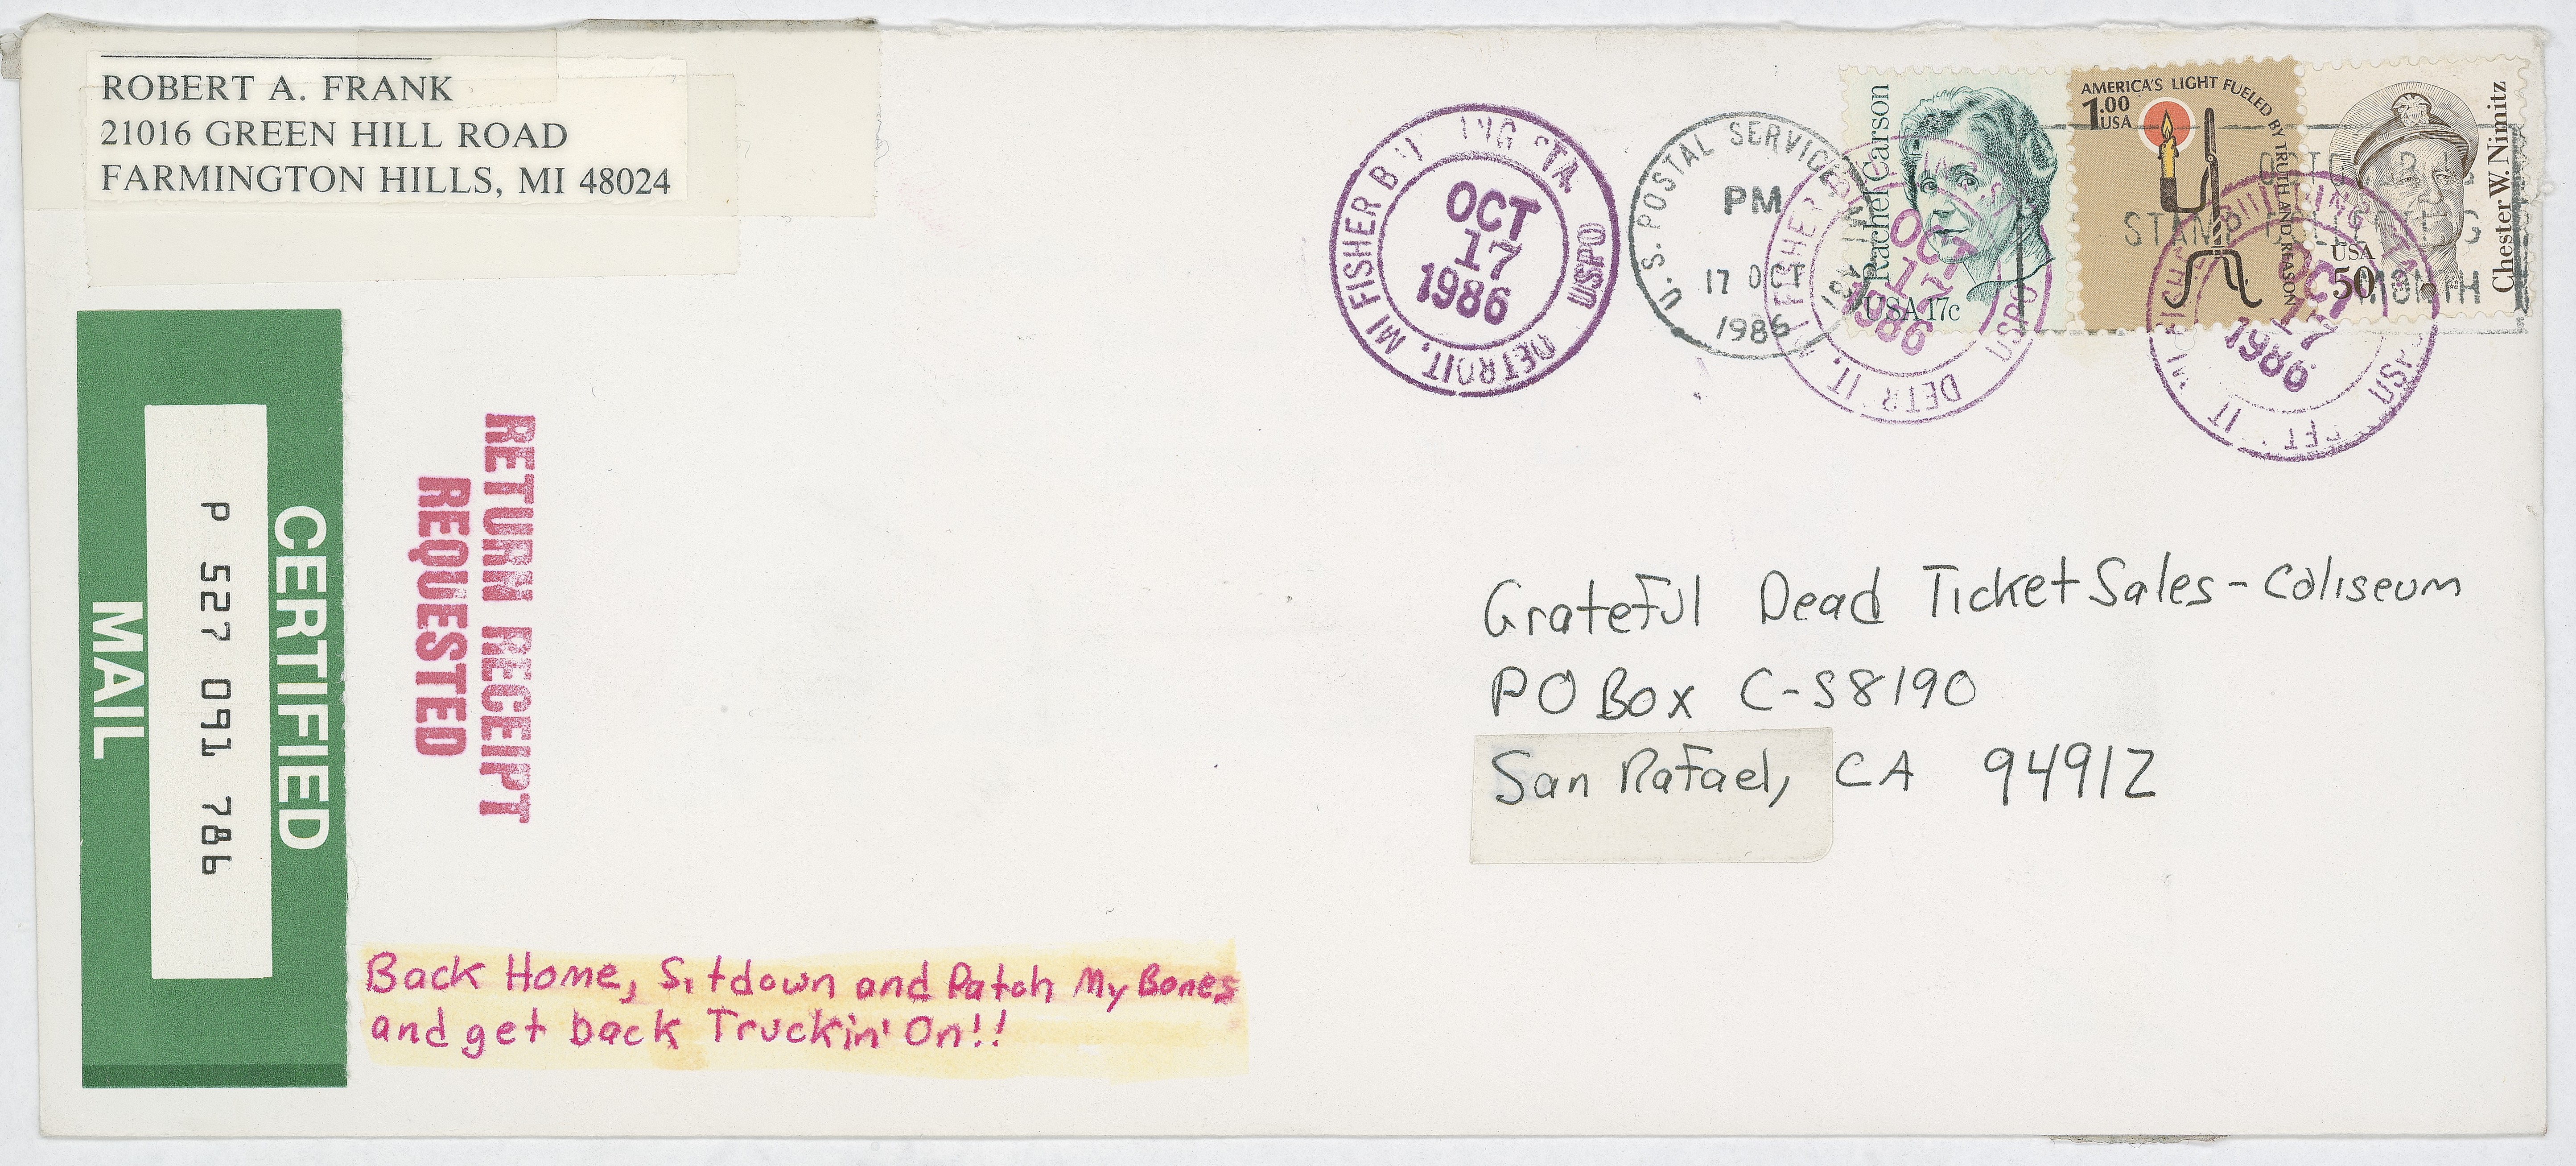 ROBERT A. FRANK
21016 GREEN HILL ROAD
FARMINGTON HILLS, MI 48024
CERTIFIED
P 527 091 786
MAIL
RETURN RECEIPT
REQUESTED
MI FISHER STA. USPO
DETROIT,
OCT
17
1986
U.S. POSTAL SERVICE MI
PM
17 OCT
1986
FISHER
OCT
17
1986
USPO
Rachel Carson
USA 17c
AMERICA'S LIGHT FUELED BY TRUTH AND REASON
1.00
USA
Chester W. Nimitz
USA
50
STAMP
MONTH
OCT
17
1986
Grateful Dead Ticket Sales - Coliseum
PO Box C-S8190
San Rafael, CA 94912
Back Home, Sitdown and Patch My Bones
and get back Truckin' On!!